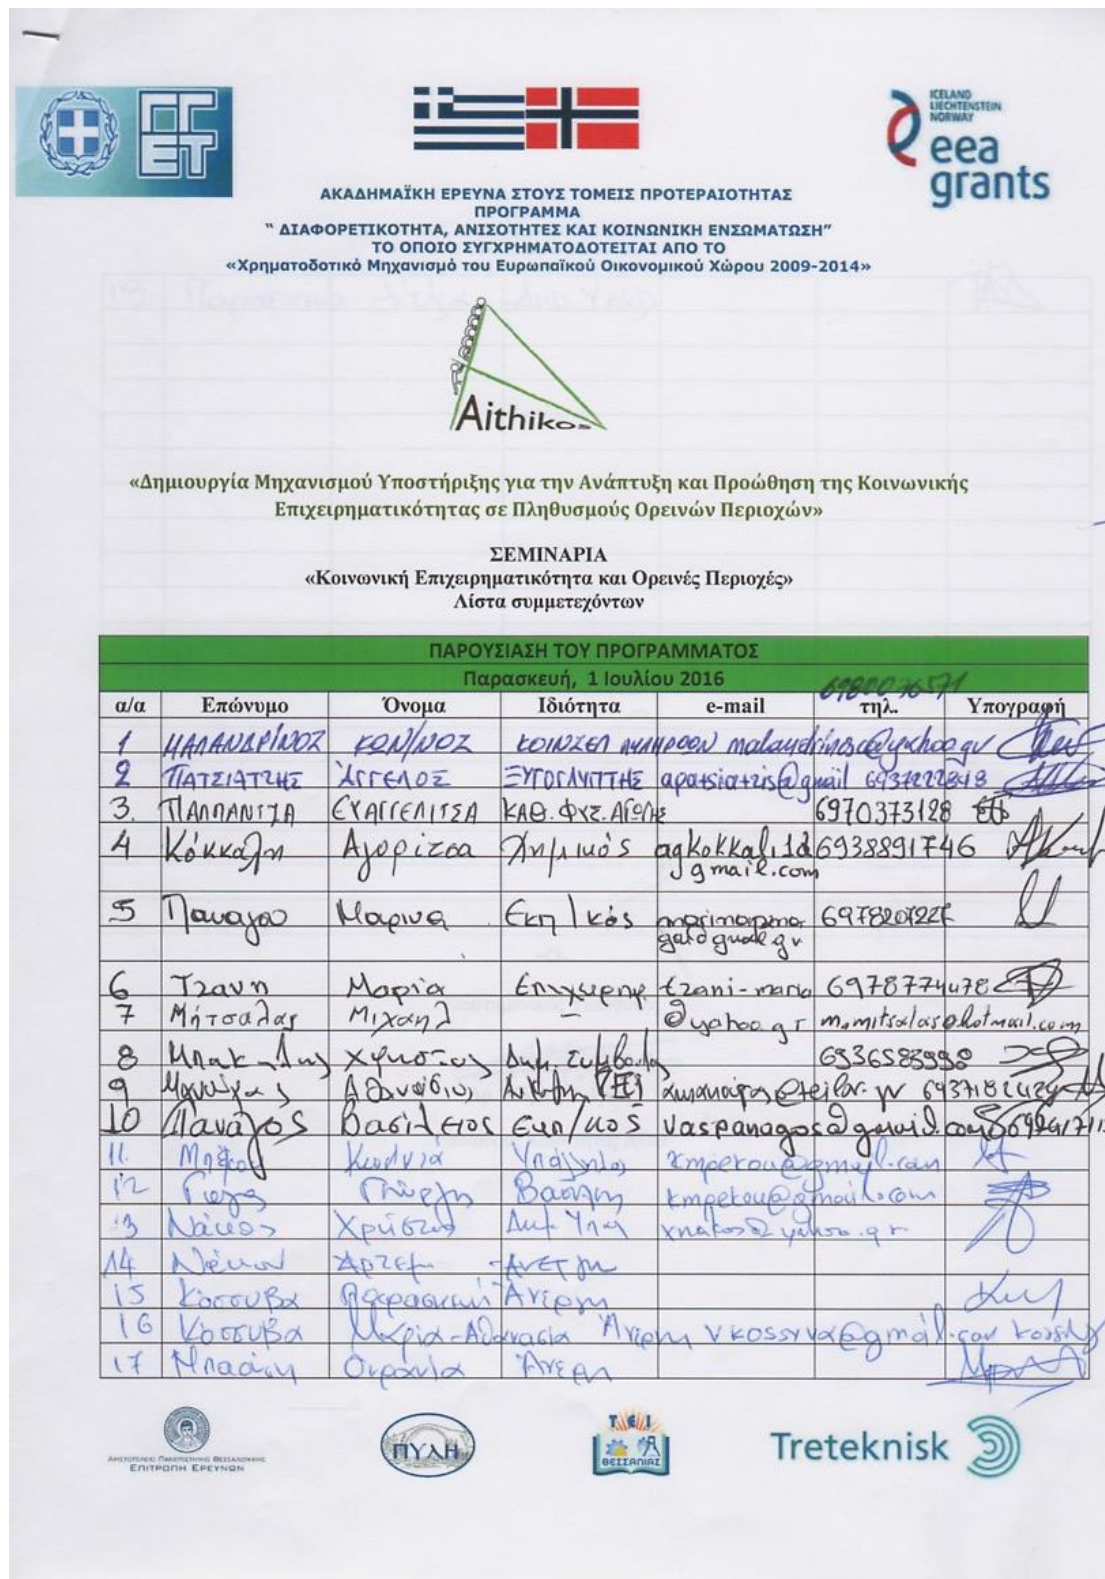 ΓΓΕΤ
ICELAND
LIECHTENSTEIN
NORWAY
eea
grants
ΑΚΑΔΗΜΑΪΚΗ ΕΡΕΥΝΑ ΣΤΟΥΣ ΤΟΜΕΙΣ ΠΡΟΤΕΡΑΙΟΤΗΤΑΣ
ΠΡΟΓΡΑΜΜΑ
“ ΔΙΑΦΟΡΕΤΙΚΟΤΗΤΑ, ΑΝΙΣΟΤΗΤΕΣ ΚΑΙ ΚΟΙΝΩΝΙΚΗ ΕΝΣΩΜΑΤΩΣΗ”
ΤΟ ΟΠΟΙΟ ΣΥΓΧΡΗΜΑΤΟΔΟΤΕΙΤΑΙ ΑΠΟ ΤΟ
«Χρηματοδοτικό Μηχανισμό του Ευρωπαϊκού Οικονομικού Χώρου 2009-2014»
Aithikos
«Δημιουργία Μηχανισμού Υποστήριξης για την Ανάπτυξη και Προώθηση της Κοινωνικής
Επιχειρηματικότητας σε Πληθυσμούς Ορεινών Περιοχών»
ΣΕΜΙΝΑΡΙΑ
«Κοινωνική Επιχειρηματικότητα και Ορεινές Περιοχές»
Λίστα συμμετεχόντων
ΠΑΡΟΥΣΙΑΣΗ ΤΟΥ ΠΡΟΓΡΑΜΜΑΤΟΣ
Παρασκευή, 1 Ιουλίου 2016
α/α Επώνυμο Όνομα Ιδιότητα e-mail τηλ. Υπογραφή
1 ΜΑΛΑΝΔΡΙΝΟΣ ΚΩΝ/ΝΟΣ
2 ΠΑΤΣΙΑΤΖΗΣ ΑΓΓΕΛΟΣ ΞΥΛΟΓΛΥΠΤΗΣ apatsiatzis@gmail 6937222848
3. ΠΑΠΠΑΝΤΖΑ ΕΥΑΓΓΕΛΙΤΣΑ ΚΑΘ. ΦΥΣ. ΑΓΩΓΗΣ 6970373128
4 Κόκκαλη Αγορίτσα Χημικός agkokkali1d 6938891746
gmail.com
5 Παναγου Μαρινα Εκπ/κός
6 Τζανη Μαρία tzani-maria 6978774478
7 Μήτσαλας Μιχαήλ – @yahoo.gr m.mitsalas@hotmail.com
8 Χρήστος Δημ. Σύμβουλος 6936583998
9 Αθανάσιος
10 Πανάγος Βασίλειος Εκπ/κός vaspanagos@gmail.com
11. Υπάλληλος kmpekou@gmail.com
12 Γιώργης kmpekou@gmail.com
13 Νάκος Χρήστος Δημ. Υπα xnakos@yahoo.gr
14 Άρτεμ
15 Κοσσυβα Παρασκευή Άνεργη
16 Κοσσυβα Μαρία-Αθανασία Άνεργη vkossyva@gmail.com
17 Ουρανία Άνεργη
ΑΡΙΣΤΟΤΕΛΕΙΟ ΠΑΝΕΠΙΣΤΗΜΙΟ ΘΕΣΣΑΛΟΝΙΚΗΣ
ΕΠΙΤΡΟΠΗ ΕΡΕΥΝΩΝ
ΠΥΛΗ
Τ.Ε.Ι.
ΘΕΣΣΑΛΙΑΣ
Treteknisk